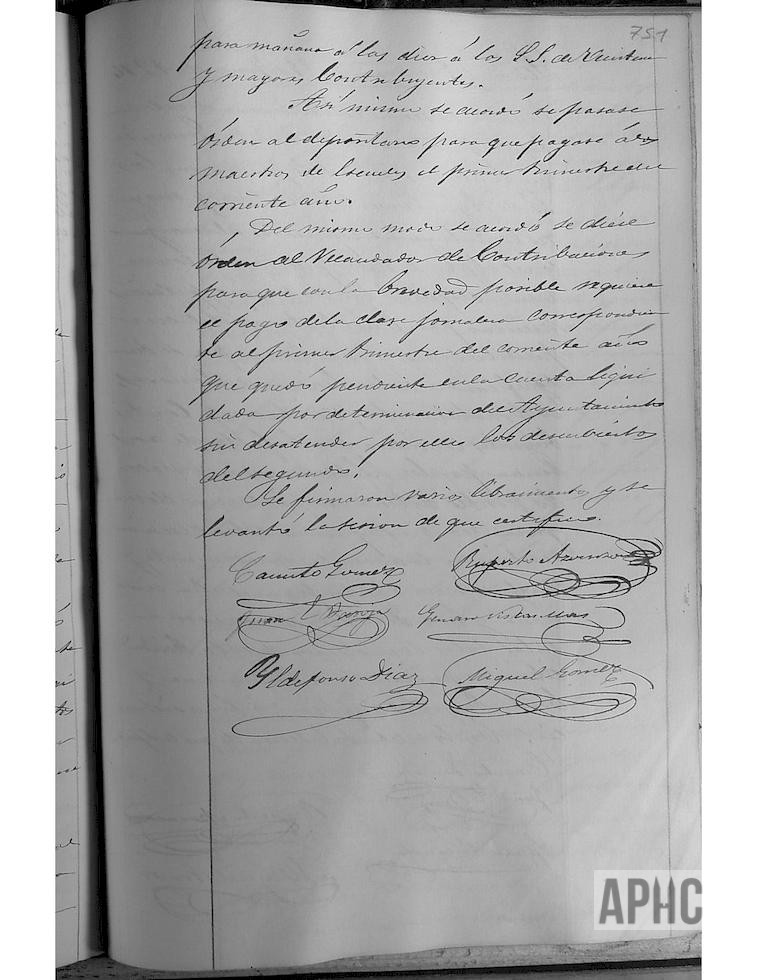 751
para mañana á las diez á los S.S. de
y mayores Contribuyentes.
Así mismo se acordó se pasase
órden al depositario para que pagase á los
maestros de Escuelas el primer trimestre del
corriente año.
Del mismo modo se acordó se diese
órden al Recaudador de Contribuciones
para que con la brevedad posible requiera
el pago de la clase jornalera correspondien
te al primer trimestre del corriente año
que quedó pendiente en la cuenta liqui
dada por determinacion del Ayuntamiento
sin desatender por ello los descubiertos
del segundo.
Se firmaron varios libramientos y se
levantó la sesion de que certifico.
Canuto Gomez
Ruperto
Juan
Genaro
Yldefonso Diaz
Miguel Gomez
APHC